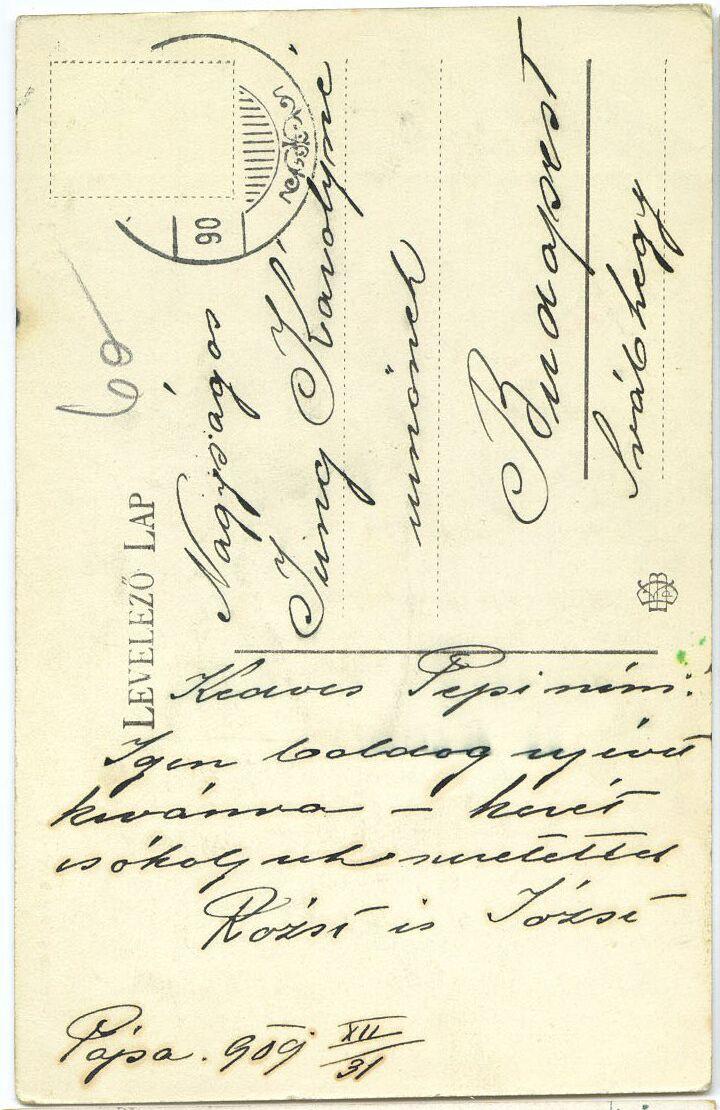 LEVELEZŐ LAP
90
60
Nagyságos
Jung Károlyné
urnőnek
Budapest
Svábhegy
Kedves Pepi néni!
Igen boldog ujévet
kivánva – kezét
csókoljuk szeretettel
Rózsi és Józsi
Pápa. 909 XII/31